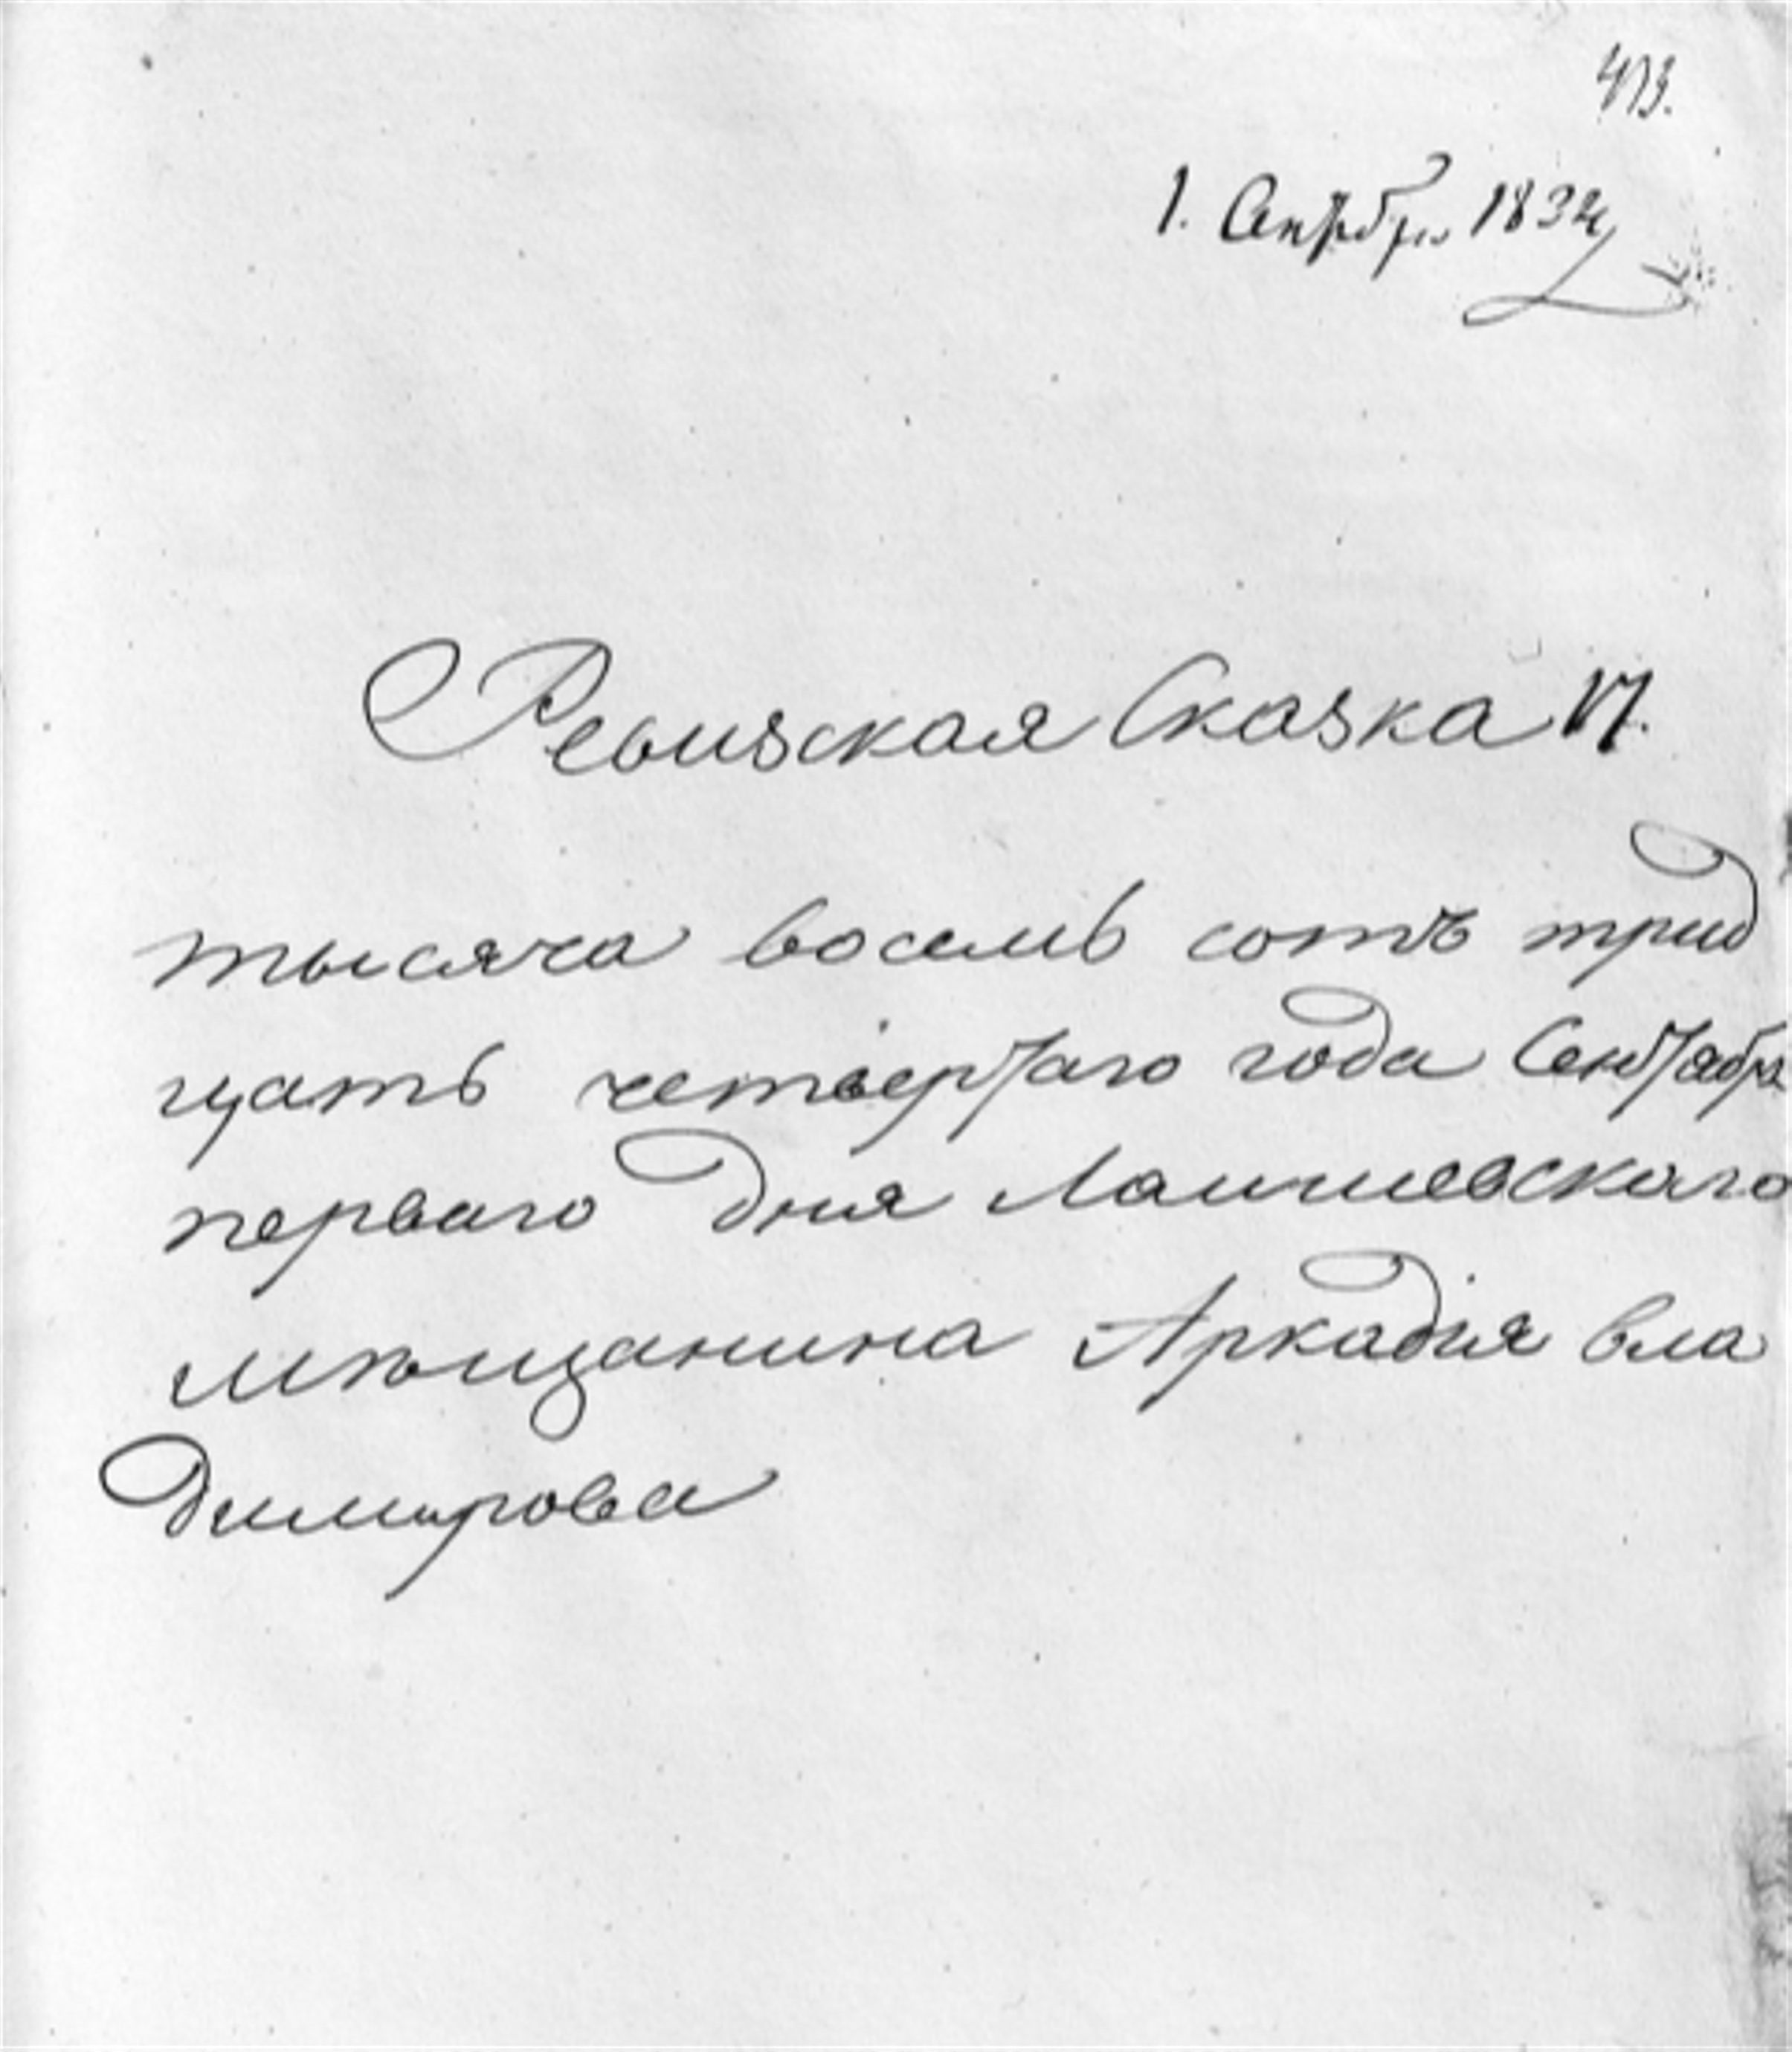 413.
1. Сентября 1834
Ревизская Сказка 17.
тысяча восемь сотъ трид
цать четвертаго года Сентября
перваго дня Лаишевскаго
мѣщанина Аркадія вла
димирова